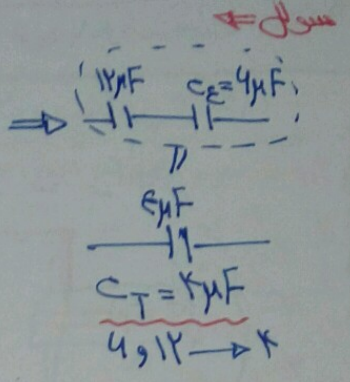 سوال
۱۲μF C٤=۶μF
۴μF
C_T=۴μF
۶ و ۱۲ → ۴